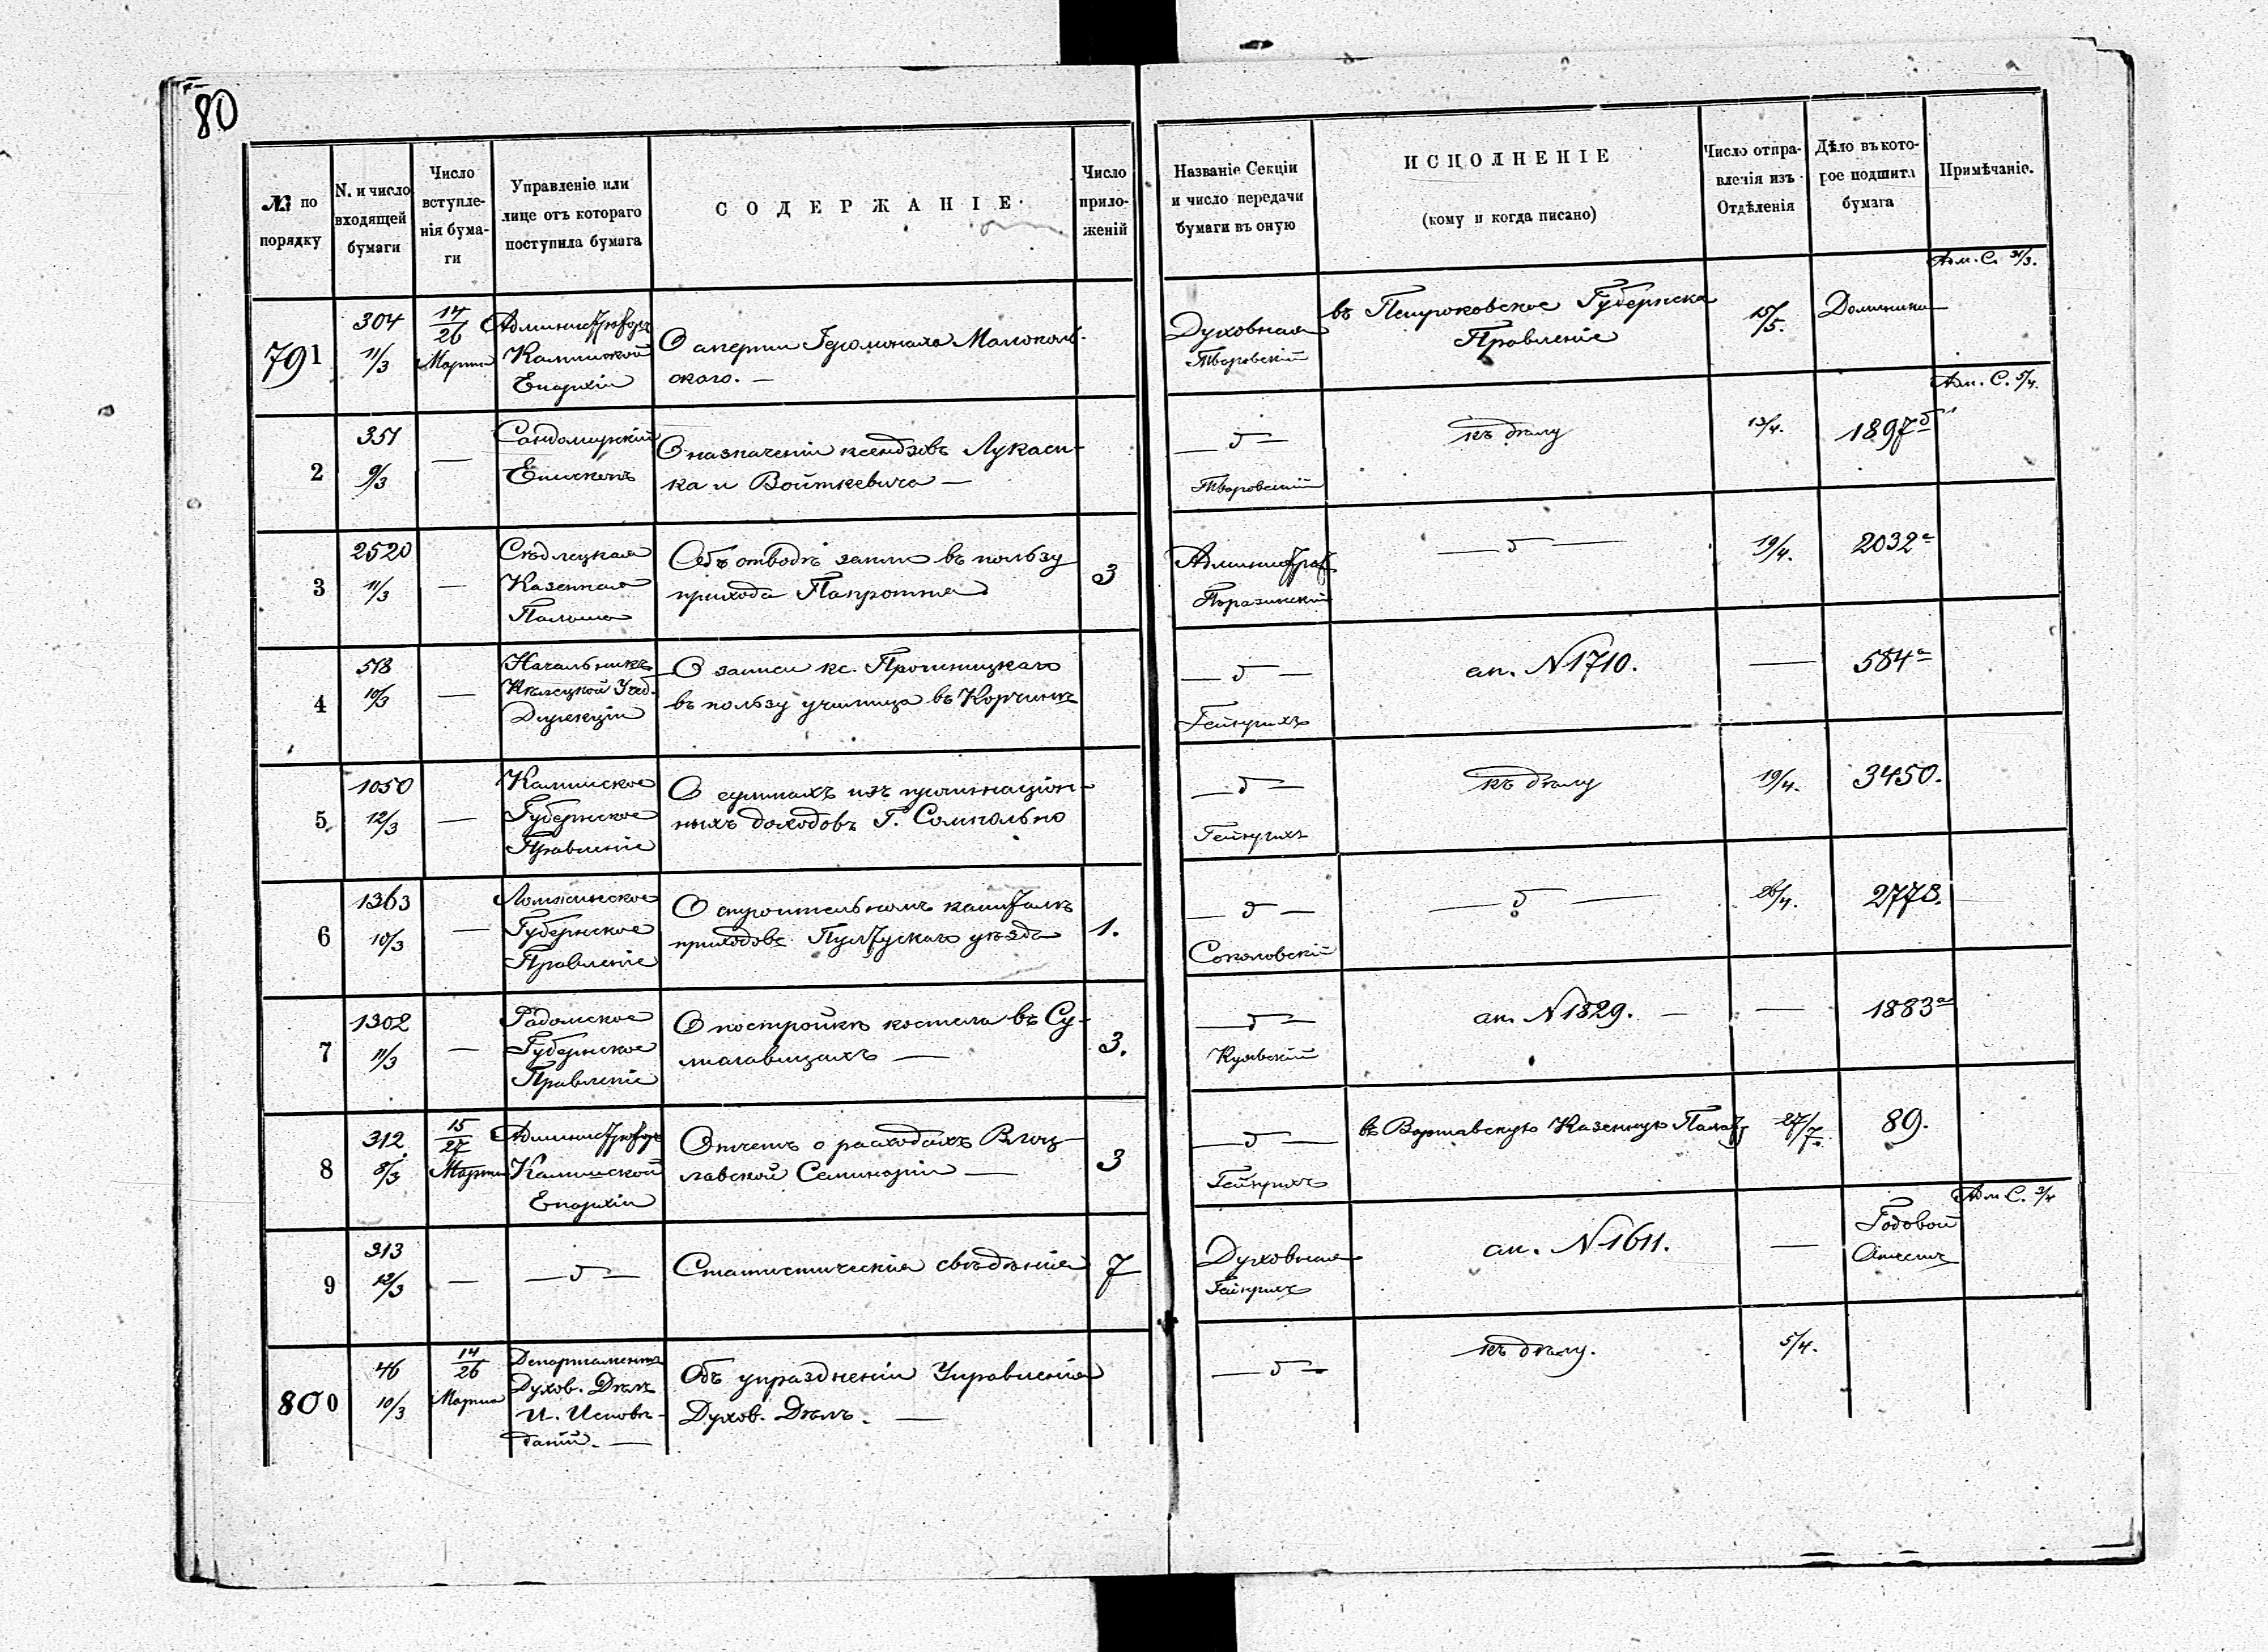 80
№ по порядку
N. и число входящей бумаги
Число вступленія бумаги
Управленіе или лице отъ котораго поступила бумага
СОДЕРЖАНІЕ.
Число приложеній
Названіе Секціи и число передачи бумаги въ оную
ИСПОЛНЕНІЕ
(кому и когда писано)
Число отправленія изъ Отдѣленія
Дѣло въ которое подшита бумага
Примѣчаніе.
791
304
11/3
14/26
Марта
Администраторъ
Калишской
Епархіи
О смерти Іеромонаха
скаго. —
Духовная
Тваровскій
въ Петроковское Губернска
Правленіе
15/5.
Доминик
Адм. С. 31/3.
2
351
9/3
—
Сандомирскій
Епископъ
О назначеніи ксендзовъ Лукаси-
ка и Войткевича —
— д —
Тваровскій
къ дѣлу
13/4.
1897б
Адм. С. 5/4.
3
2520
11/3
—
Сѣдлецкая
Казенная
Палата
Объ отводѣ земли въ пользу
прихода Папротня
3
Администрат.
— д —
19/4.
2032а
4
518
10/3
—
Начальникъ
Кѣлецкой Учеб.
Дирекціи
О записи кс.
въ пользу училища въ Корчинѣ
— д —
Гейнрихъ
ал. N 1710.
—
584а
5
1050
12/3
—
Калишское
Губернское
Правленіе
О суммахъ изъ пропинаціон-
ныхъ доходовъ Г. Сомпольно
— д —
Гейнрихъ
къ дѣлу
19/4.
3450.
6
1363
10/3
—
Ломжинское
Губернское
Правленіе
О строительномъ капиталѣ
приходовъ Пултускаго уѣзда
1.
— д —
Соколовскій
— д —
26/4.
2778.
7
1302
11/3
—
Радомское
Губернское
Правленіе
О постройкѣ костела въ Су-
лиславицахъ —
3.
— д —
Куявскій
ал. N 1829. —
—
1883а
8
312
8/3
15/27
Марта
Администраторъ
Калишской
Епархіи
Отчетъ о расходахъ Влоц-
лавской Семинаріи —
3
— д —
Гейнрихъ
въ Варшавскую Казенную Палату
27/7.
89.
9
313
12/3
—
— д —
Статистическія свѣдѣнія
7
Духовная
Гейнрихъ
ал. N 1611.
—
Годовой
Отчетъ
Адм. С. 3/4
800
46
10/3
14/26
Марта
Департаментъ
Духов. Дѣлъ
И. Исповѣ-
даній. —
Объ упраздненіи Управленія
Духов. Дѣлъ. —
— д —
къ дѣлу.
5/4.